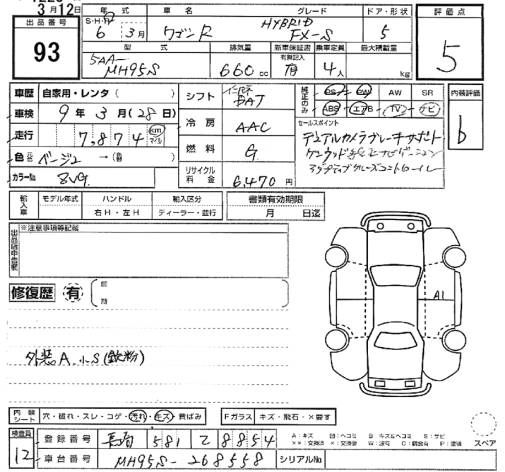 3月12日
出品番号
93
年式
S・H・R
6年 3月
車名
ワゴンR
グレード
HYBRID
FX-S
ドア・形状
5
評価点
5
型式
5AA-
MH95S
排気量
660cc
新車保証書
有無記入
有
乗車定員
4人
最大積載量
kg
車歴 自家用・レンタ( )
車検 9年 3月(28日)
走行 7,874 km マイル
色 ベージュ →(色替 )
カラーNo 8VG
シフト AT
冷房 AAC
燃料 G
リサイクル料金 6,470円
純正のみ PS PW AW SR
ABS エアB TV ナビ
セールスポイント
デュアルカメラブレーキサポート
アダプティブクルーズコントロール
内装評価
b
輸入車 モデル年式 ハンドル 右H・左H 輸入区分 ディーラー・並行
書類有効期限
月 日迄
※注意事項等記載
修復歴 有
外装A.小S(鉄粉)
A1
内装シート 穴・破れ・スレ・コゲ・汚れ・キズ・黄ばみ
Fガラス キズ・飛石・X要す
検査員
12
登録番号 581 て 8854
車台番号 MH95S-268558
シリアルNo
スペア